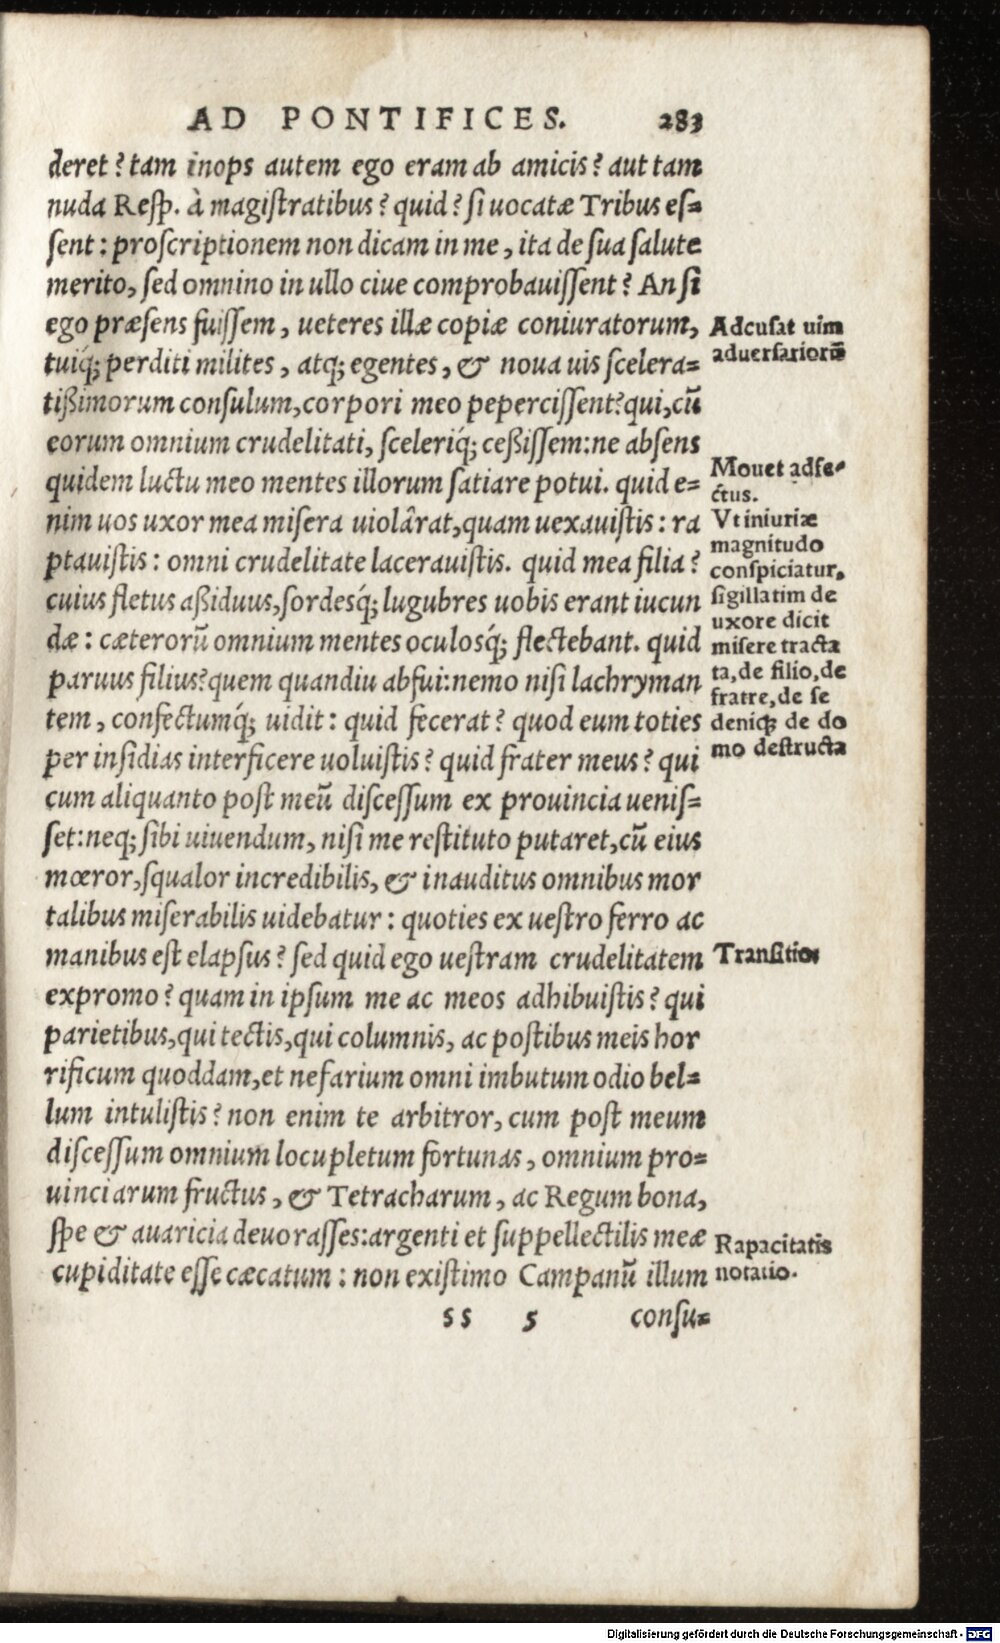 AD PONTIFICES. 283
deret? tam inops autem ego eram ab amicis? aut tam
nuda Resp. à magistratibus? quid? si uocatæ Tribus es=
sent: proscriptionem non dicam in me, ita de sua salute
merito, sed omnino in ullo ciue comprobauissent? An si
ego præsens fuissem, ueteres illæ copiæ coniuratorum,
tuiq́; perditi milites, atq; egentes, & noua uis scelera=
tißimorum consulum, corpori meo pepercissent? qui, cũ
eorum omnium crudelitati, sceleriq́; ceßissem: ne absens
quidem luctu meo mentes illorum satiare potui. quid e=
nim uos uxor mea misera uiolârat, quam uexauistis: ra
ptauistis: omni crudelitate lacerauistis. quid mea filia?
cuius fletus aßiduus, sordesq́; lugubres uobis erant iucun
dæ: cæterorũ omnium mentes oculosq́; flectebant. quid
paruus filius? quem quandiu abfui: nemo nisi lachryman
tem, confectumq́; uidit: quid fecerat? quod eum toties
per insidias interficere uoluistis? quid frater meus? qui
cum aliquanto post meũ discessum ex prouincia uenis=
set: neq; sibi uiuendum, nisi me restituto putaret, cũ eius
mœror, squalor incredibilis, & inauditus omnibus mor
talibus miserabilis uidebatur: quoties ex uestro ferro ac
manibus est elapsus? sed quid ego uestram crudelitatem
expromo? quam in ipsum me ac meos adhibuistis? qui
parietibus, qui tectis, qui columnis, ac postibus meis hor
rificum quoddam, et nefarium omni imbutum odio bel=
lum intulistis? non enim te arbitror, cum post meum
discessum omnium locupletum fortunas, omnium pro=
uinciarum fructus, & Tetracharum, ac Regum bona,
spe & auaricia deuorasses: argenti et suppellectilis meæ
cupiditate esse cæcatum: non existimo Campanũ illum
ss 5 consu=
Adcusat uim
aduersariorũ
Mouet adfe-
ctus.
Vt iniuriæ
magnitudo
conspiciatur,
sigillatim de
uxore dicit
misere tracta
ta, de filio, de
fratre, de se
deniq; de do
mo destructa
Transitio.
Rapacitatis
notatio.
Digitalisierung gefördert durch die Deutsche Forschungsgemeinschaft - DFG